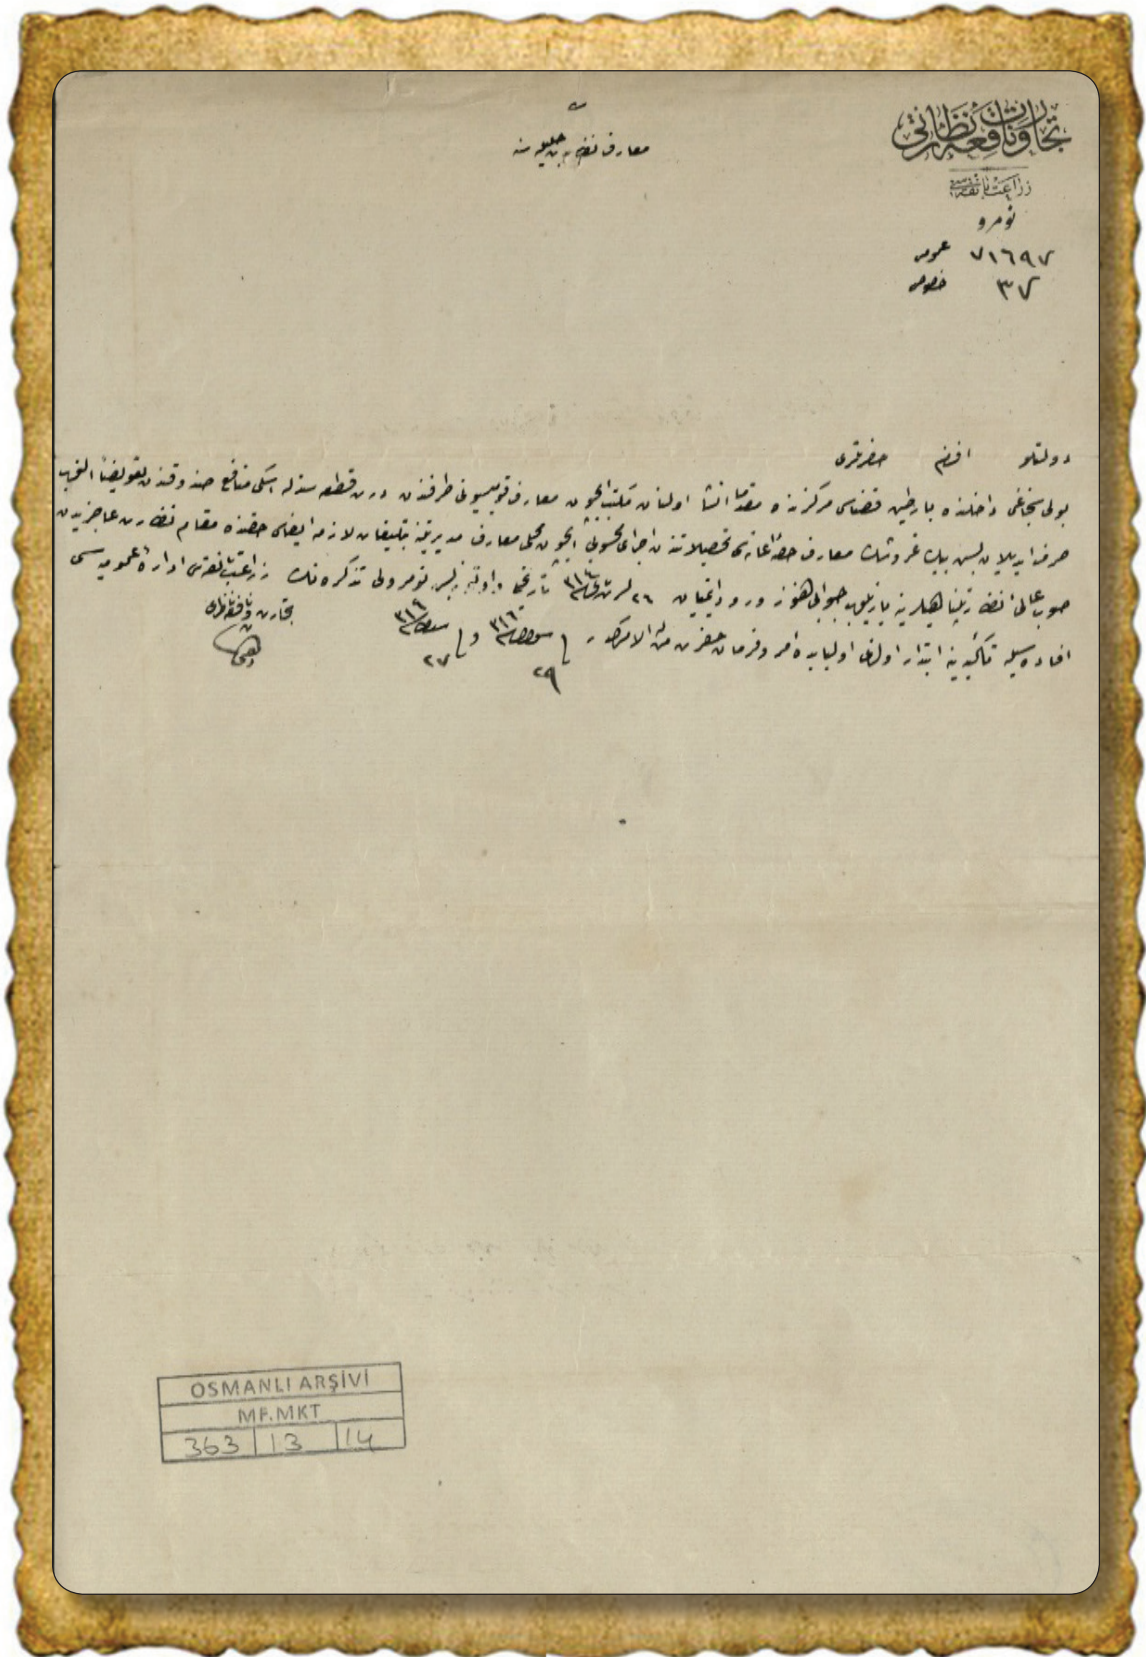 تجارت ونافعه نظارتی
زراعت بانقه‌سی
نومرو
٧١٦٩٧ عمومی
٣٧ خصوصی
معارف نظارت جلیله‌سنه
دولتلو افندم حضرتلری
بولی سنجاغی داخلنده بارطین قضاسی مرکزنده مقدما انشا اولنان مکتب ایچون معارف قومیسیونی طرفندن درت قطعه سندله اسکی منافع صندوقندن
صرف ایدیلان بیك غروشك معارف حصه اعانه‌سی تحصیلاتندن اجرای محسوبی ایچون محلی معارف مدیریتنه تبلیغات لازمه ایفاسی حقنده مقام نظارت عاجزیدن
صوب عالی نظارتپناهیلرینه یازیلوب جوابی هنوز ورود ایتمیان ٢٦ ٣١٦ تاریخلی نومرولی تذکره‌نك زراعت بانقه‌سی اداره عمومیه‌سی
افاده‌سیله تأکیدینه ابتدار اولندی اولبابده امر وفرمان حضرت من له الامرکدر
٣١٦ و ٣١٦
٢٩ ٢٧
تجارت ونافعه ناظری
OSMANLI ARŞİVİ
MF.MKT
363 13 14